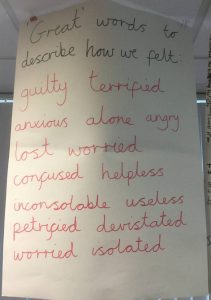 "Great" words to
describe how we felt:
guilty terrified
anxious alone angry
lost worried
confused helpless
inconsolable useless
petrified devistated
worried isolated